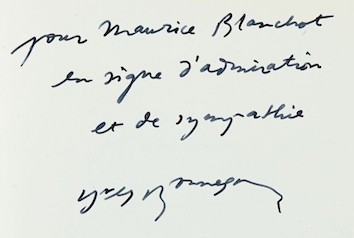 pour Maurice Blanchot
en signe d'admiration
et de sympathie
Yves Bonnefoy